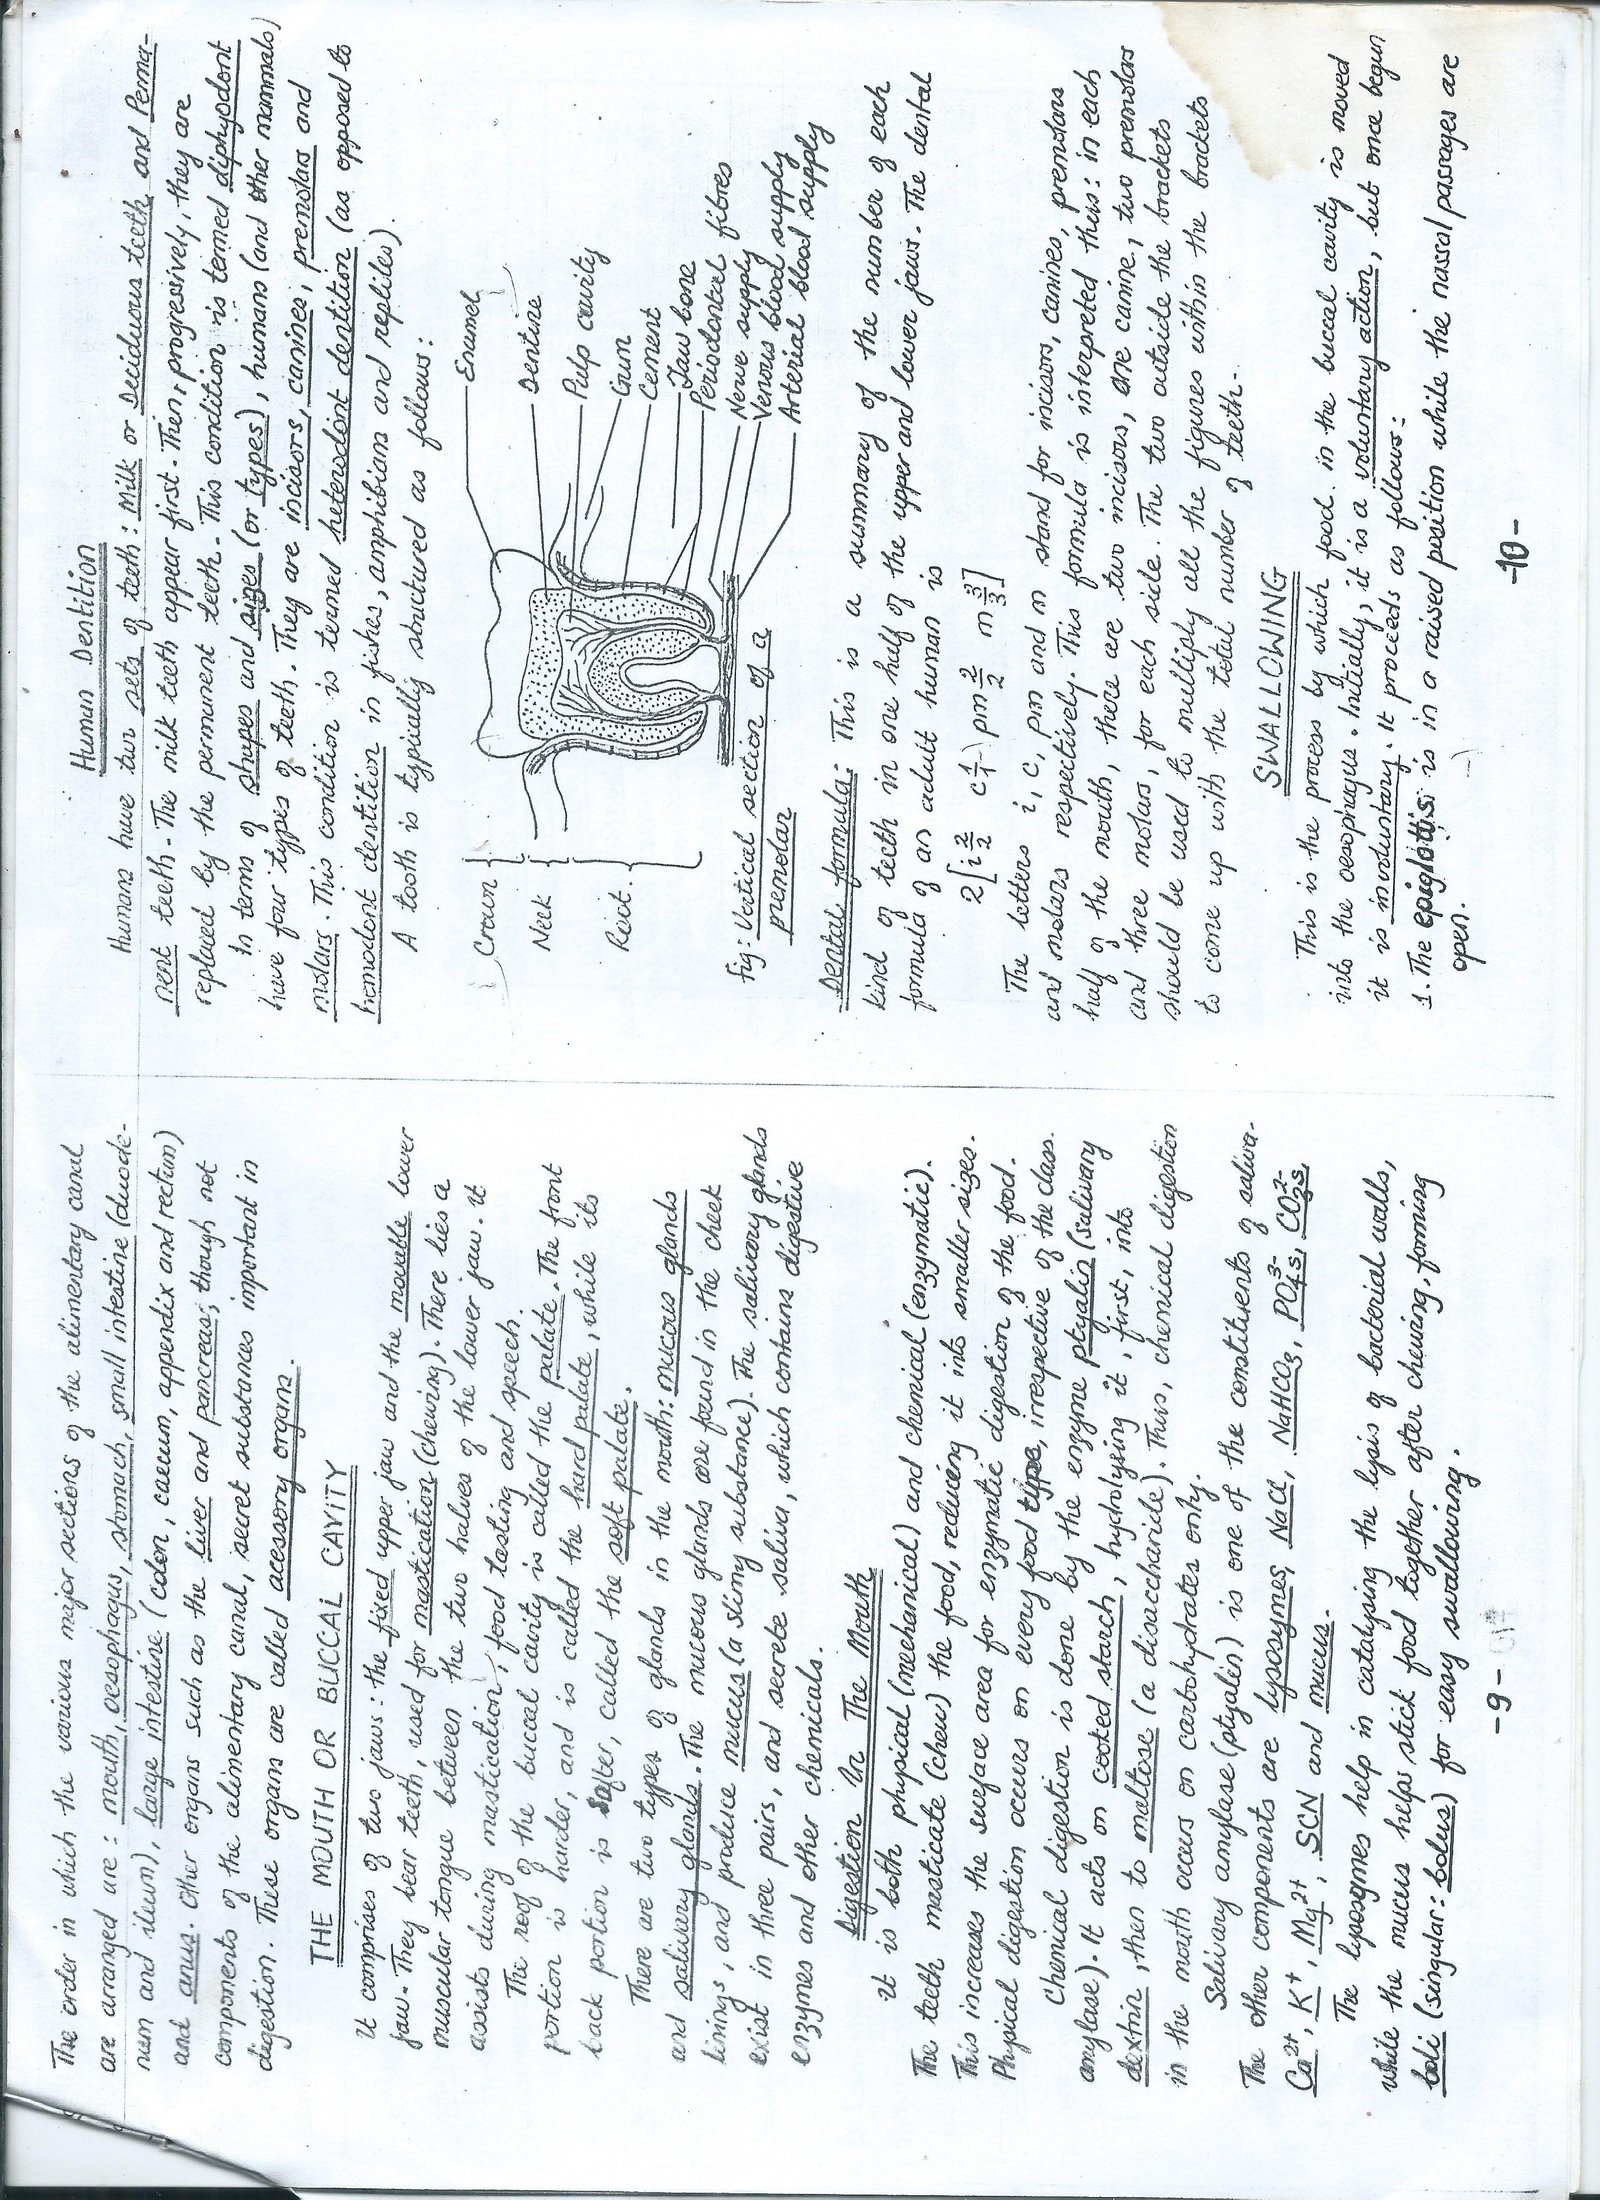 The order in which the various major sections of the alimentary canal
are arranged are: mouth, oesophagus, stomach, small intestine (duode-
num and ileum), large intestine (colon, caecum, appendix and rectum)
and anus. Other organs such as the liver and pancreas, though not
components of the alimentary canal, secret substances important in
digestion. These organs are called accessory organs.
THE MOUTH OR BUCCAL CAVITY
It comprises of two jaws: the fixed upper jaw and the movable lower
jaw. They bear teeth, used for mastication (chewing). There lies a
muscular tongue between the two halves of the lower jaw. It
assists during mastication, food tasting and speech.
The roof of the buccal cavity is called the palate. The front
portion is harder, and is called the hard palate, while its
back portion is softer, called the soft palate.
There are two types of glands in the mouth: mucous glands
and salivary glands. The mucous glands are found in the cheek
linings, and produce mucus (a slimy substance). The salivary glands
exist in three pairs, and secrete saliva, which contains digestive
enzymes and other chemicals.
Digestion In The Mouth
It is both physical (mechanical) and chemical (enzymatic).
The teeth masticate (chew) the food, reducing it into smaller sizes.
This increases the surface area for enzymatic digestion of the food.
Physical digestion occurs on every food type, irrespective of the class.
Chemical digestion is done by the enzyme ptyalin (salivary
amylase). It acts on cooked starch, hydrolysing it, first, into
dextrin, then to maltose (a disaccharide). Thus, chemical digestion
in the mouth occurs on carbohydrates only.
Salivary amylase (ptyalin) is one of the constituents of saliva.
The other components are lysosymes, NaCl, NaHCO3, PO4³⁻s, CO3²⁻s,
Ca²⁺, K⁺, Mg²⁺, SCN and mucus.
The lysosymes help in catalysing the lysis of bacterial walls,
while the mucus helps stick food together after chewing, forming
boli (singular: bolus) for easy swallowing.
-9-
Human Dentition
Humans have two sets of teeth: Milk or Deciduous teeth and Perma-
nent teeth. The milk teeth appear first. Then, progressively, they are
replaced by the permanent teeth. This condition is termed diphyodont
In terms of shapes and sizes (or types), humans (and other mammals)
have four types of teeth. They are incisors, canines, premolars and
molars. This condition is termed heterodont dentition (as opposed to
homodont dentition in fishes, amphibians and reptiles).
A tooth is typically structured as follows:
Crown
Neck
Root
Enamel
Dentine
Pulp cavity
Gum
Cement
Jaw bone
Periodontal fibres
Nerve supply
Venous blood supply
Arterial blood supply
fig: Vertical section of a
premolar
Dental formula: This is a summary of the number of each
kind of teeth in one half of the upper and lower jaws. The dental
formula of an adult human is
2[i 2/2 c 1/1 pm 2/2 m 3/3]
The letters i, c, pm and m stand for incisors, canines, premolars
and molars respectively. This formula is interpreted thus: in each
half of the mouth, there are two incisors, one canine, two premolars
and three molars, for each side. The two outside the brackets
should be used to multiply all the figures within the brackets
to come up with the total number of teeth.
SWALLOWING
This is the process by which food in the buccal cavity is moved
into the oesophagus. Initially, it is a voluntary action, but once begun
it is involuntary. It proceeds as follows:
1. The epiglottis is in a raised position while the nassal passages are
open.
-10-